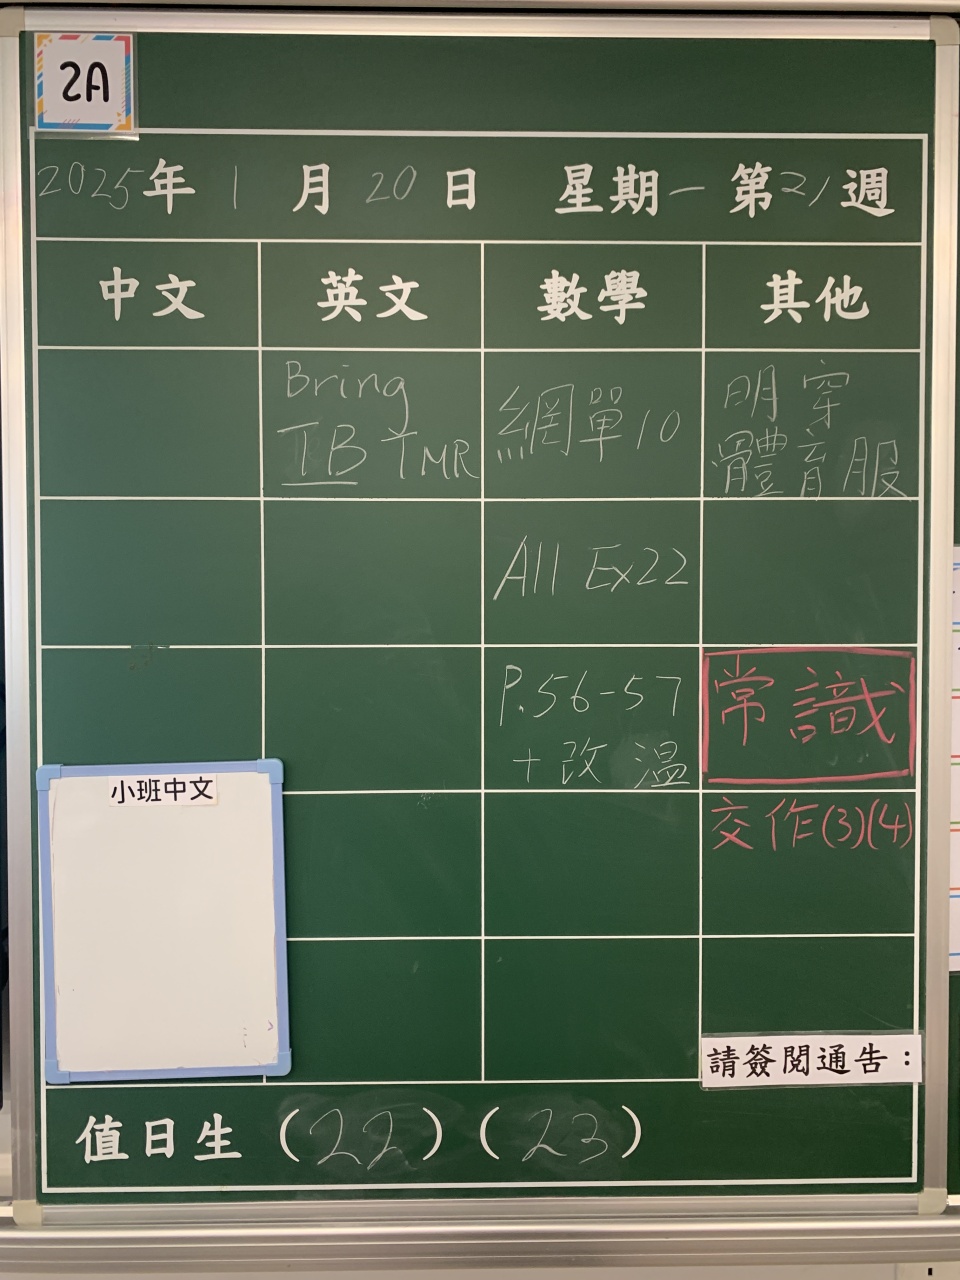 2A
2025年 1 月 20 日 星期一 第21週
中文 英文 數學 其他
Bring
TB TMR
網單10
明 穿
體育服
All Ex22
P.56-57
+改 溫
常識
交作(3)(4)
小班中文
請簽閱通告：
值日生 (22) (23)